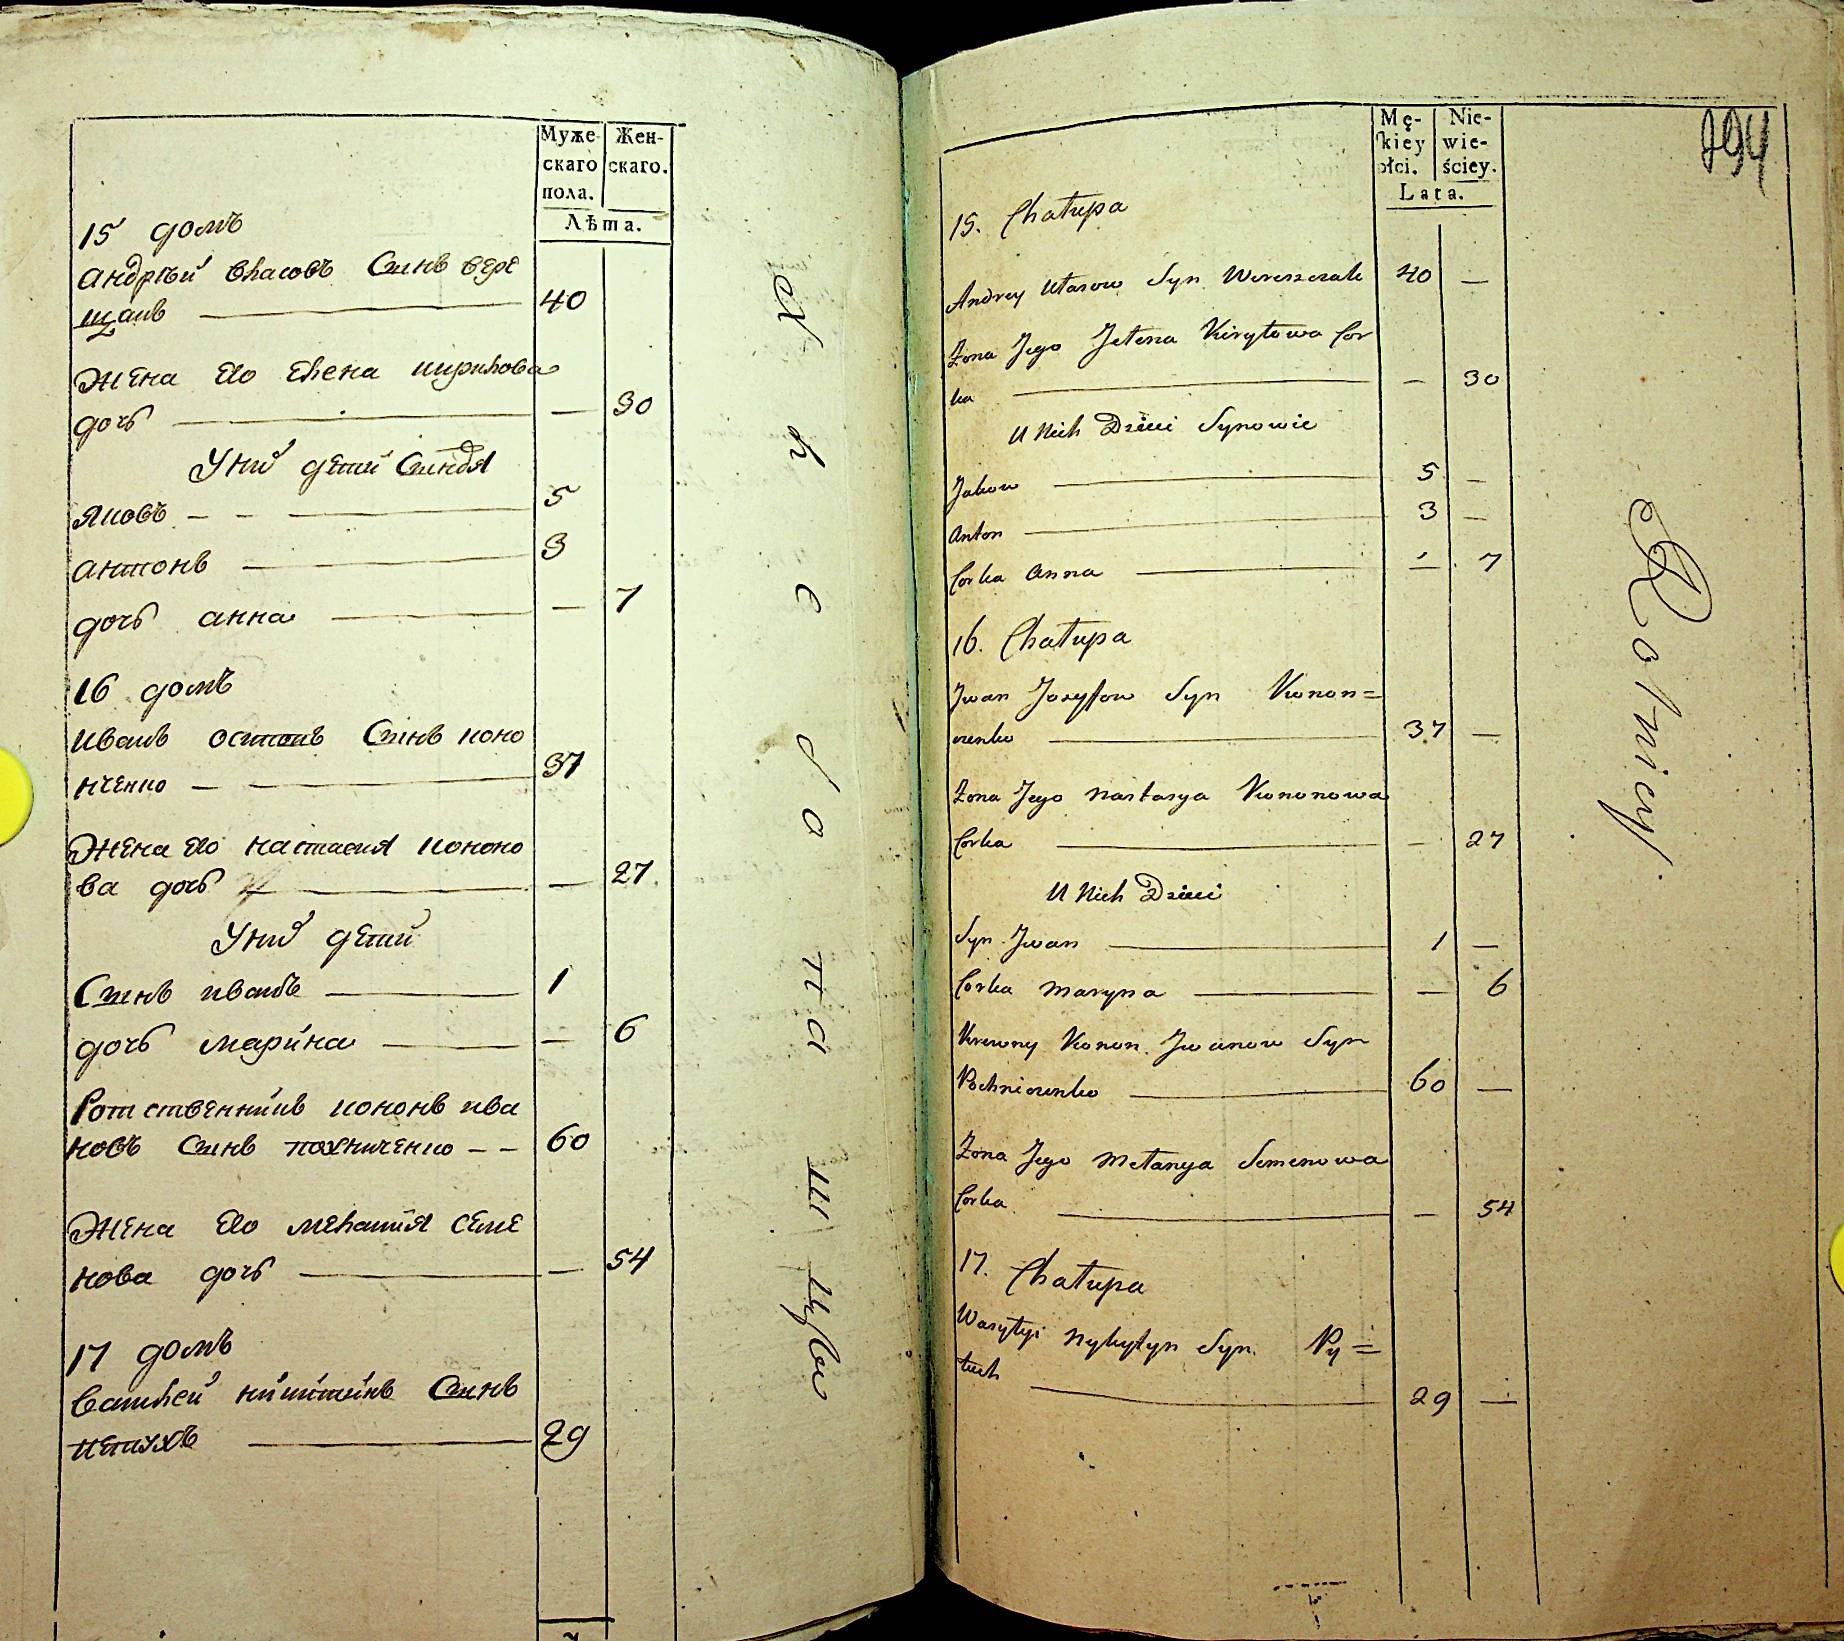 Муже-
скаго
пола.
Жен-
скаго.
Лѣта.
15 домъ
Андрѣй Власовъ Синъ вере
щакъ 40
Жена Его Елена кирилова
дочь — 30
У них дети Синовя
Яковъ 5
антонъ 3
дочь анна — 7
16 домъ
иванъ осиповъ Синъ коно
нченко 37
Жена Его настасия кононо
ва дочь — 27
У них дети
Синъ иванъ 1
дочь марина — 6
Ротственникъ кононъ ива
новъ Синъ похниченко 60
Жена Его мелания семе
нова дочь — 54
17 домъ
василей никитинъ Синъ
петухъ 29
Mę-
kiey
płci.
Nie-
wie-
ściey.
Lata.
294
15. Chałupa
Andrey Własow Syn Wereszczak 40 —
Żona Jego Jelena Kiryłowa Cor
ka — 30
U Nich Dzieci Synowie
Jakow 5 —
Anton 3 —
Corka Anna — 7
16. Chałupa
Jwan Josyffow Syn Konon=
czenko 37 —
Żona Jego Nastasya Kononowa
Corka — 27
U Nich Dzieci
Syn Jwan 1 —
Corka Maryna — 6
Krewny Konon Jwanow Syn
Pochniczenko 60 —
Żona Jego Mełanya Semenowa
Corka — 54
17. Chałupa
Wasylyi Nykytyn Syn Py=
tuch 29 —
Rolnicy.